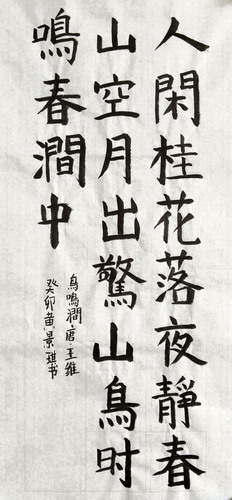 人閑桂花落夜靜春
山空月出驚山鳥时
鳴春澗中
鳥鳴澗唐王維
癸卯黄景琪书